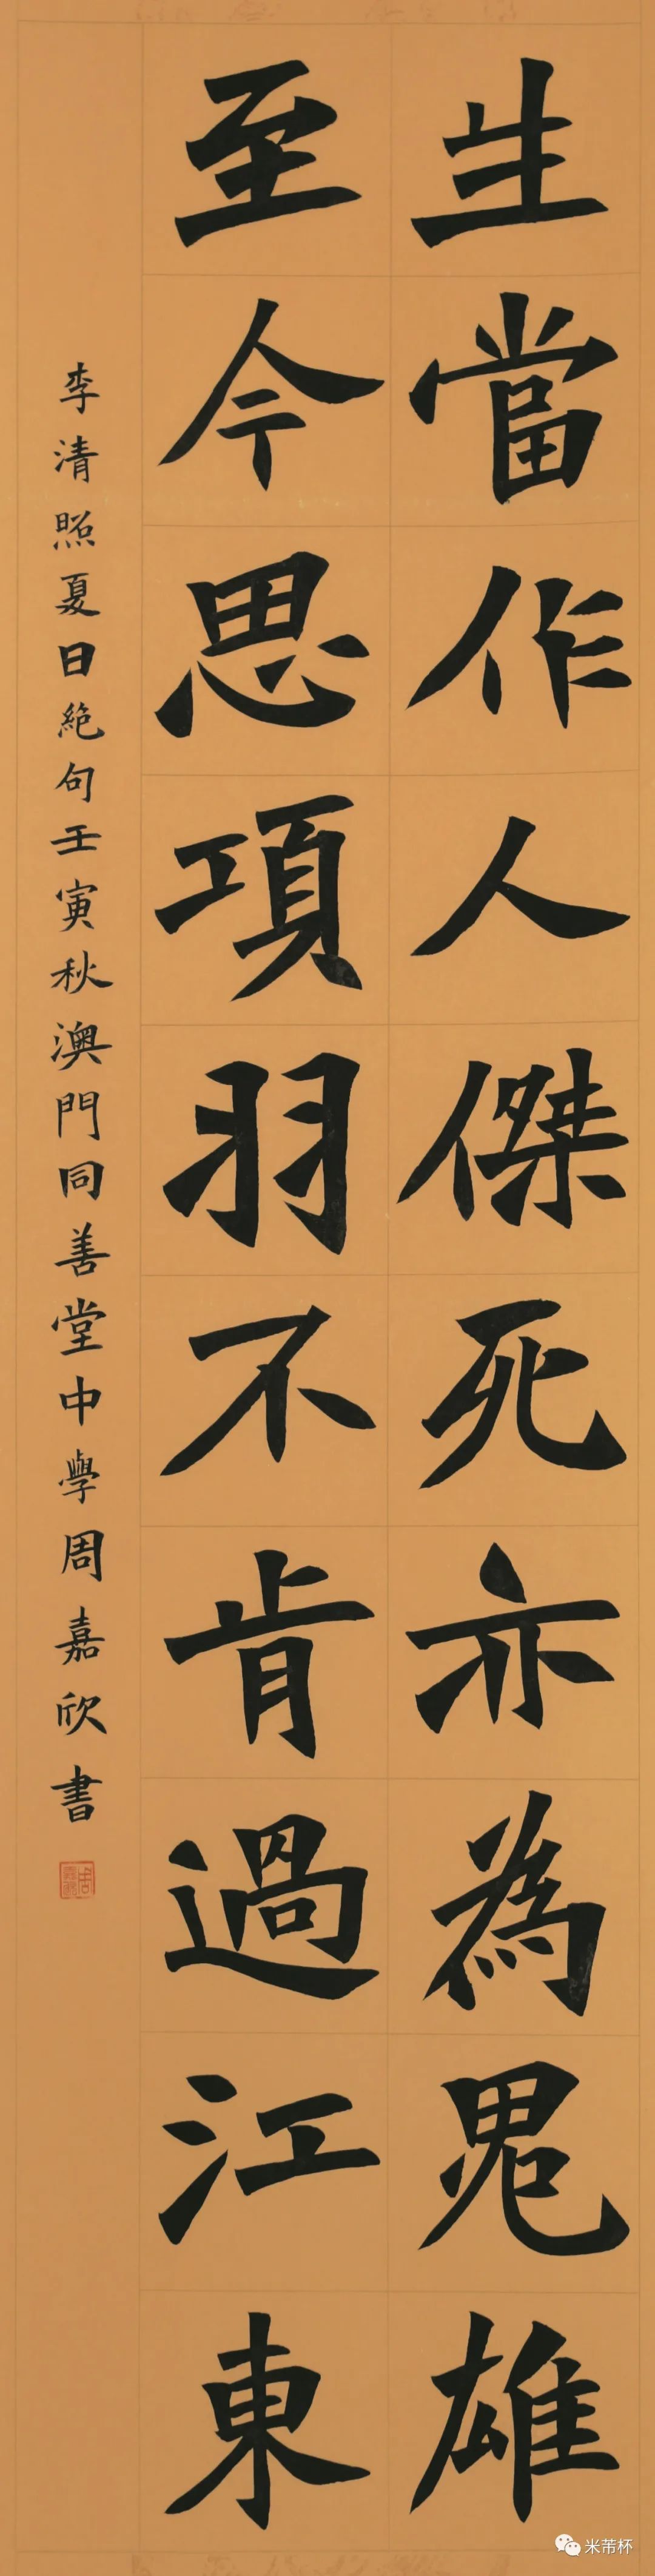 生當作人傑死亦為鬼雄
至今思項羽不肯過江東
李清照夏日絶句壬寅秋澳門同善堂中學周嘉欣書
米芾杯